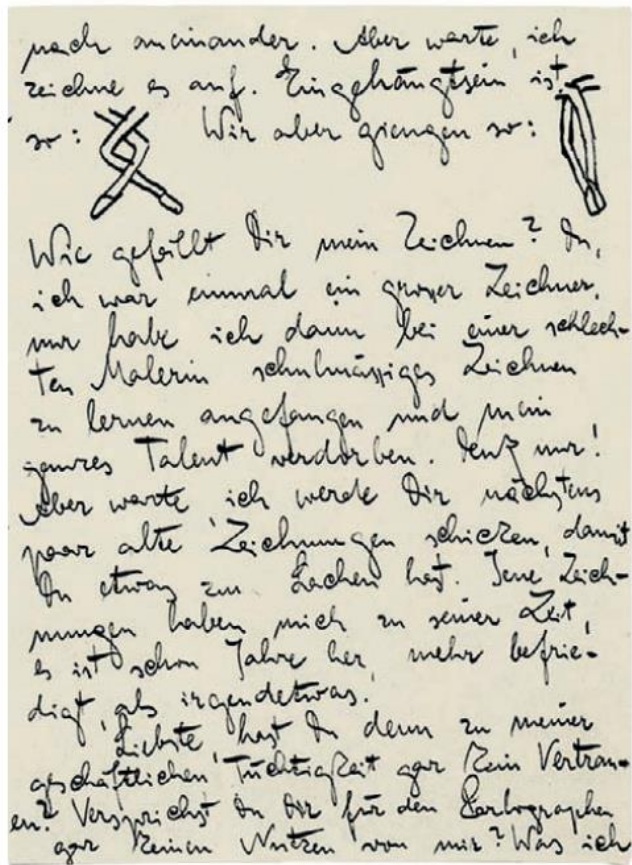 nach aneinander. Aber warte, ich
zeichne es auf. Eingehängtsein ist
so: Wir aber giengen so:
Wie gefällt Dir mein Zeichnen? Du,
ich war einmal ein grosser Zeichner,
nur habe ich dann bei einer schlech-
ten Malerin schulmässiges Zeichnen
zu lernen angefangen und mein
ganzes Talent verdorben. Denk nur!
Aber warte ich werde Dir nächstens
paar alte Zeichnungen schicken, damit
Du etwas zum Lachen hast. Jene Zeich-
nungen haben mich zu seiner Zeit,
es ist schon Jahre her, mehr befrie-
digt, als irgendetwas.
Liebste, hast Du denn zu meiner
geschäftlichen Tüchtigkeit gar kein Vertrau-
en? Versprichst Du Dir für den Parlographen
gar keinen Nutzen von mir? Was ich